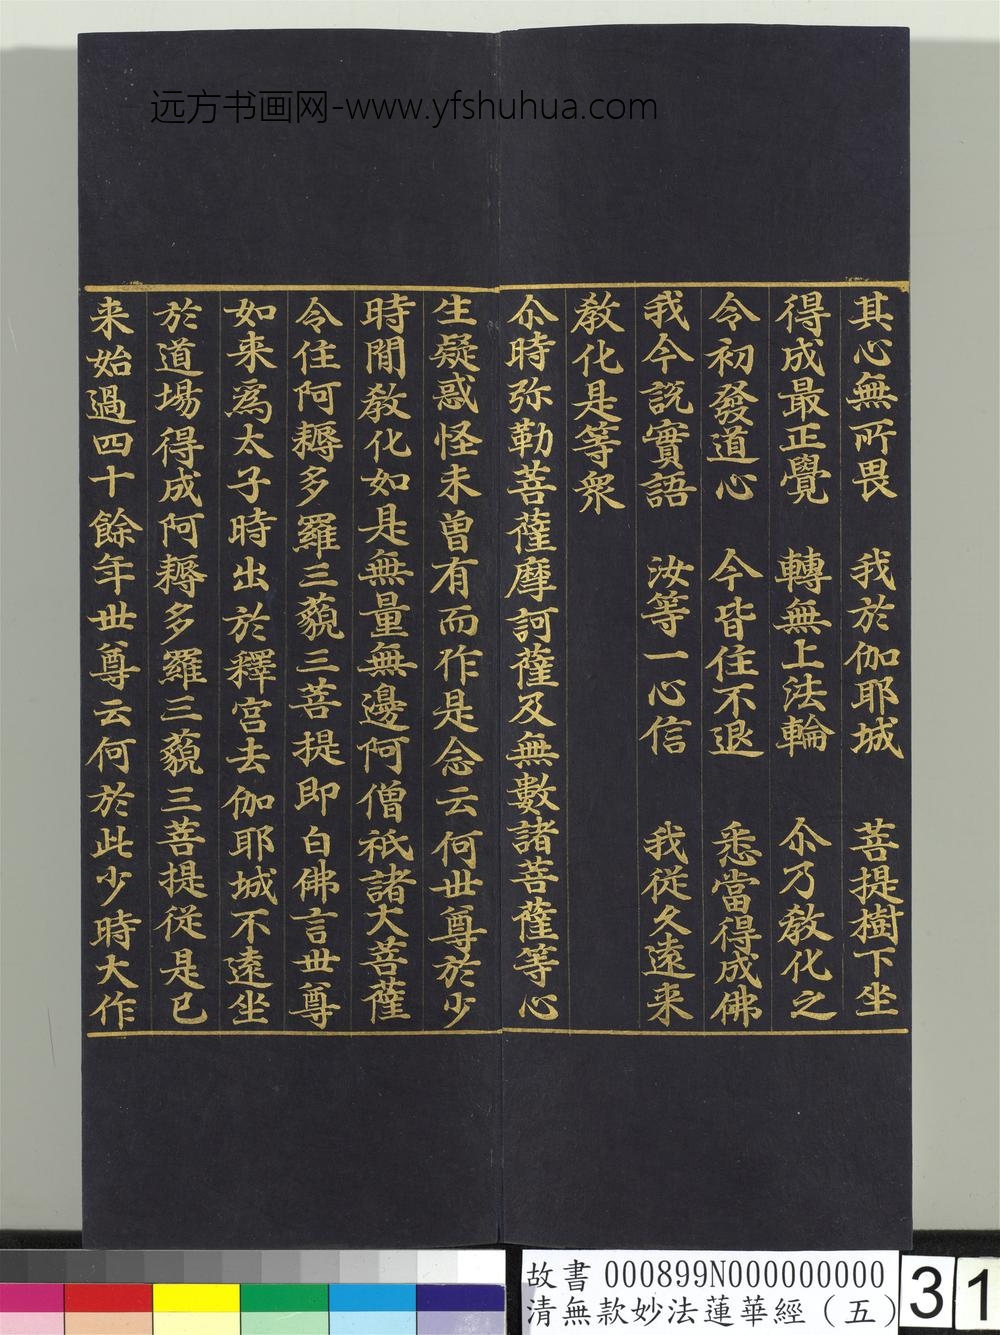 远方书画网-www.yfshuhua.com
其心無所畏　我於伽耶城　菩提樹下坐
得成最正覺　轉無上法輪　尒乃教化之
令初發道心　今皆住不退　悉當得成佛
我今説實語　汝等一心信　我從久遠来
教化是等衆
尒時弥勒菩薩摩訶薩及無數諸菩薩等心
生疑惑怪未曾有而作是念云何世尊於少
時間教化如是無量無邊阿僧祇諸大菩薩
令住阿耨多羅三藐三菩提即白佛言世尊
如来爲太子時出於釋宫去伽耶城不遠坐
於道場得成阿耨多羅三藐三菩提從是已
来始過四十餘年世尊云何於此少時大作
故書 000899N000000000
清無款妙法蓮華經（五）
31